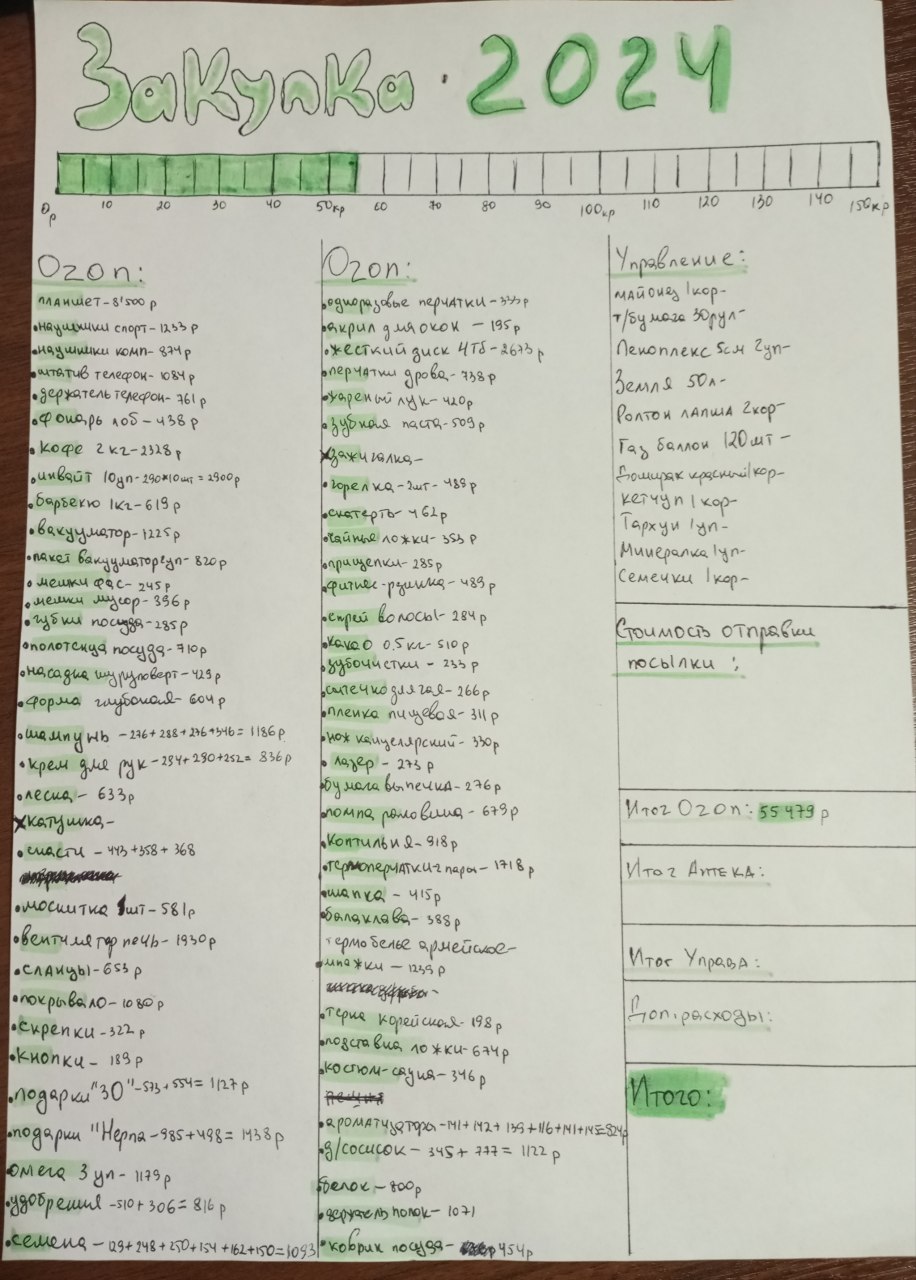 Закупка · 2024
0р 10 20 30 40 50кр 60 70 80 90 100кр 110 120 130 140 150кр
Озоп:
планшет - 8'500 р
наушники спорт - 1233р
наушники комп - 874р
штатив телефон - 1084р
держатель телефон - 761
фонарь лоб - 438р
кофе 2 кг - 2328р
инвайт 10уп - 290*10шт = 2900р
барбекю 1кг - 619р
вакууматор - 1225р
пакет вакууматор 2уп - 820р
мешки фас - 245р
мешки мусор - 396р
губки посуда - 285р
полотенца посуда - 710р
насадка шуруповерт - 429р
форма глубокая - 604р
шампунь - 276+288+276+346 = 1186р
крем для рук - 294+290+252 = 836р
леска - 633р
катушка -
снасти - 443+358+368
москитка 1шт - 581р
вентилятор печь - 1930р
сланцы - 653р
покрывало - 1080р
скрепки - 322р
кнопки - 189р
подарки "30" - 573+554 = 1127р
подарки "Нерпа - 985+498 = 1438р
омега 3 уп - 1179р
удобрения - 510+306 = 816р
семена - 129+248+250+154+162+150=1093
Озоп:
одноразовые перчатки - 333р
акрил для окон - 195р
жесткий диск 4Тб - 2673р
перчатки дрова - 738р
жареный лук - 420р
зубная паста - 509р
зажигалка -
горелка - 2шт - 489р
скатерть - 462р
чайные ложки - 353р
прищепки - 285р
фитнес-резинка - 489р
спрей волосы - 284р
какао 0.5кг - 510р
зубочистки - 233р
266р
пленка пищевая - 311р
нож канцелярский - 330р
лазер - 273р
бумага выпечка - 276р
помпа раковина - 679р
коптильня - 918р
термоперчатки 2 пары - 1718р
шапка - 415р
балаклава - 388р
термобелье армейское -
- 1239р
терка корейская - 198р
подставка ложки - 674р
костюм-сауна - 346р
ароматизатора - 141+142+139+116+141+145=824р
д/сосисок - 345+777 = 1122р
белок - 800р
держатель полок - 1071
коврик посуда - 454р
Управление:
майонез 1кор -
т/бумага 30рул -
Пеноплекс 5см 2уп -
Земля 50л -
Ролтон лапша 2кор -
Газ баллон 120шт -
Доширак красный 1кор -
кетчуп 1кор -
Тархун 1уп -
Минералка 1уп -
Семечки 1кор -
Стоимость отправки
посылки :
Итог Озоп: 55 479 р
Итог Аптека:
Итог Управа:
Доп.расходы:
Итого: